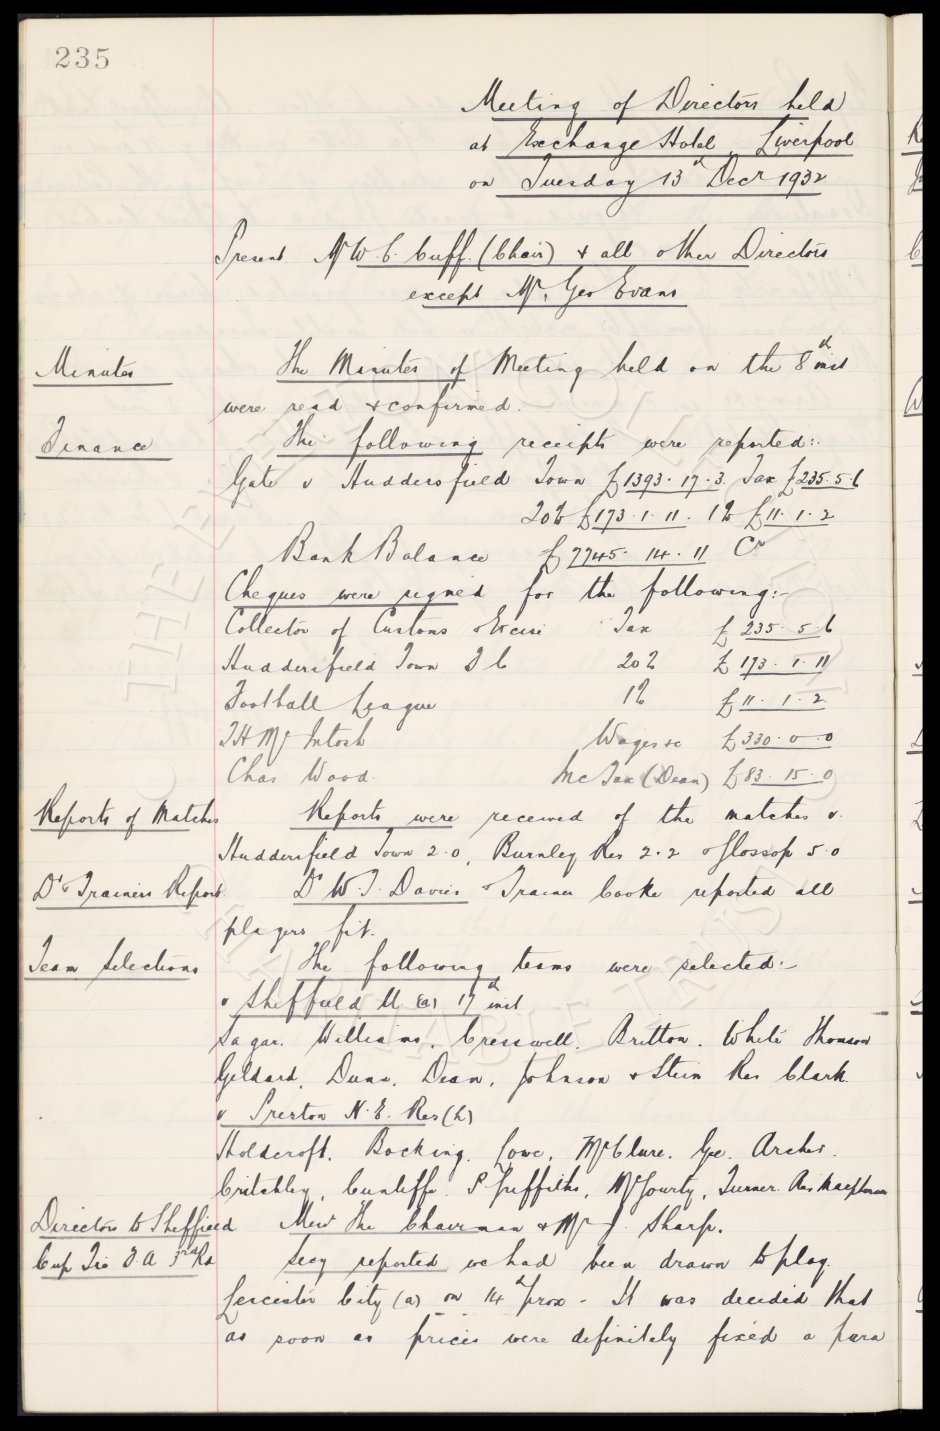 235
Meeting of Directors held
at Exchange Hotel, Liverpool
on Tuesday 13th Decr 1932
Present Mr W. C. Cuff. (Chair) & all other Directors
except Mr. Geo Evans
Minutes The Minutes of Meeting held on the 8th inst
were read & confirmed.
Finance The following receipts were reported:-
Gate v Huddersfield Town £1393.17.3. Tax £235.5.6
20% £173.1.11. 1% £11.1.2
Bank Balance £7745.14.11 Cr
Cheques were signed for the following:-
Collector of Customs & Excise Tax £235.5.6
Huddersfield Town F C 20% £173.1.11
Football League 1% £11.1.2
T H McIntosh Wages &c £330.0.0
Chas Wood Inc Tax (Dean) £83.15.0
Reports of Matches Reports were received of the matches v.
Huddersfield Town 2.0, Burnley Res 2.2 & Glossop 5.0
Dr & Trainers Report Dr W. J. Davies & Trainer Cooke reported all
players fit.
Team Selections The following teams were selected:-
v Sheffield U (a) 17th inst
Sagar. Williams, Cresswell. Britton. White Thomson
Geldard, Dunn, Dean, Johnson & Stein Res Clark.
v Preston N.E. Res (h)
Holdcroft. Bocking. Lowe, McClure. Gee. Archer.
Critchley, Cunliffe. P Griffiths, McGourty, Turner. Res Macpherson
Directors to Sheffield Messrs The Chairman & Mr J. Sharp.
Cup Tie F.A 3rd Rd Secy reported we had been drawn to play
Leicester City (a) on 14th prox - It was decided that
as soon as prices were definitely fixed a para
THE EVERTON COLLECTION
CHARITABLE TRUST